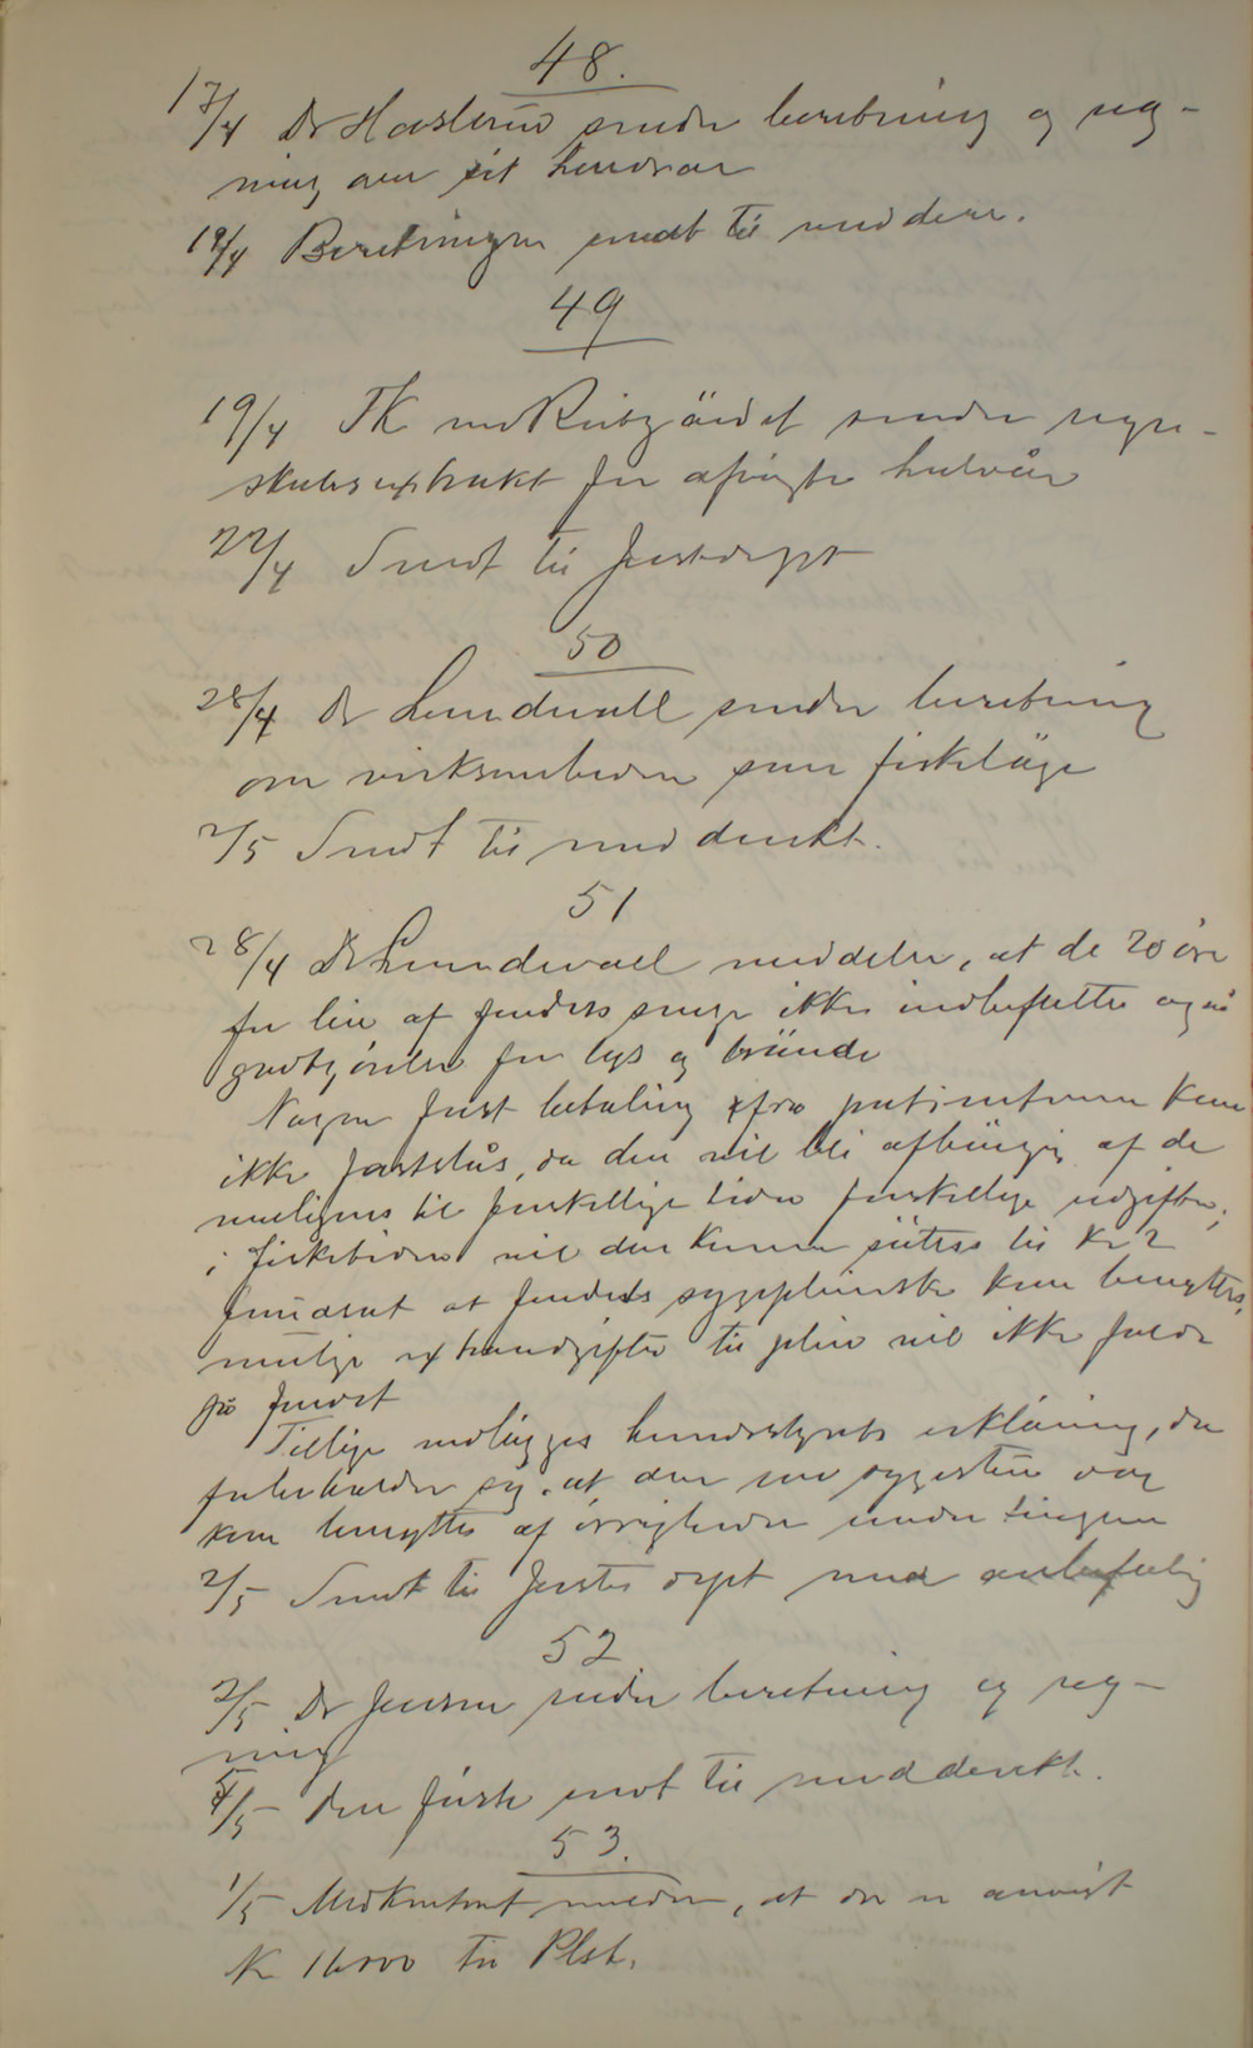 48.
17/4 Dr Haslerud sender beretning og reg-
ning over sit honorar
19/4 Beretningen sendt til meddir.
49
19/4 TK ved Reitgjärdet sender regn-
skabsextrakt for afvigte halvår
22/4 Sendt til Justdept
50
28/4 Dr Lundevall sender beretning
om virksomheden som fiskeläge
2/5 Sendt til meddirekt.
51
28/4 Dr Lundevall meddeler, at de 20 öre
for leie af fondets senge ikke indbefatter også
godtgjörelse for lys og brände
Nogen fast betaling fra patienterne kan
ikke fastslås, da den vil bli afhängig af de
muligens til forskellige tider forskellige udgifter;
i fisketiden vil den kunne sättes til Kr 2
forudsat at fondets sygeplejerske kan benyttes,
mulige extraudgifter til pleie vil ikke falde
på fondet
Tillige vedlägges herredsstyrets erkläring, der
forbeholder sig, at den nye sygestue også
kan benyttes af övrigheden under tingene
2/5 Sendt til Justisdept med anbefaling
52
2/5 Dr Jensen sender beretning og reg-
ning
5/5 Den förste sendt til meddirekt.
53.
1/5 Medkontoret melder, at der er anvist
Kr 16000 til Plst.